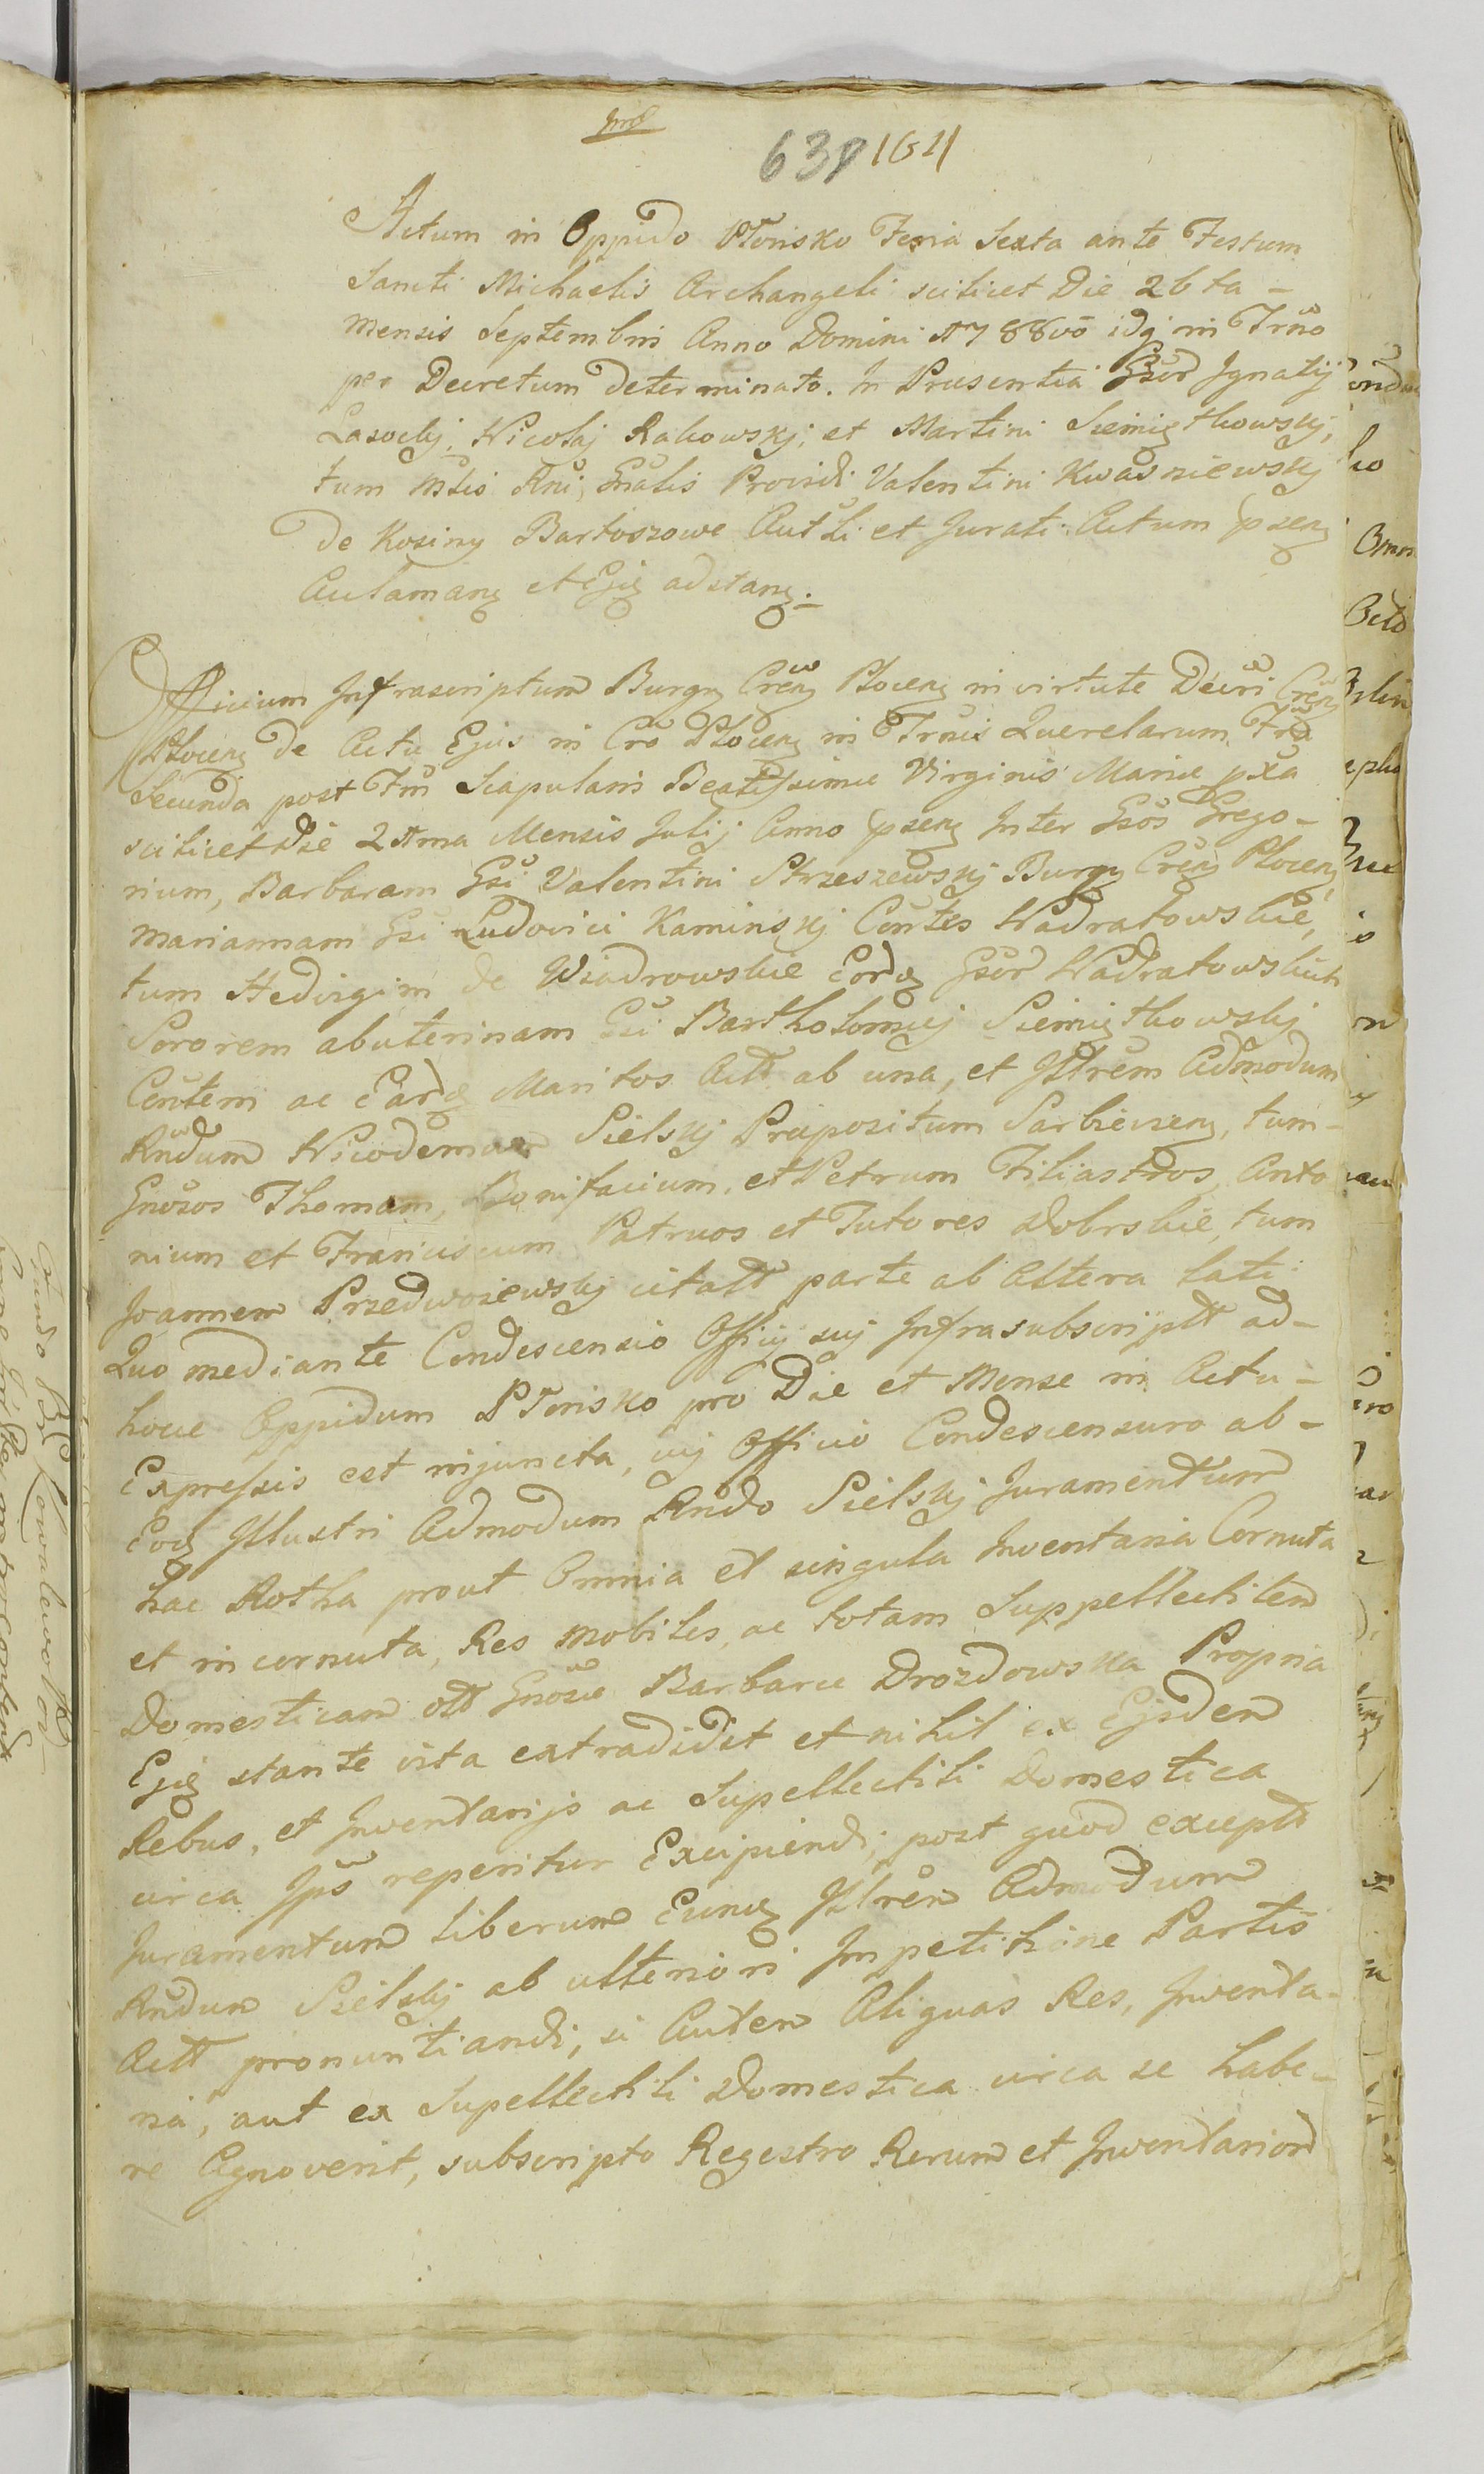 639 1641
Actum in Oppido Płońsko Feria Sexta ante Festum
Sancti Michaelis Archangeli scilicet Die 26ta –
Mensis Septembris Anno Domini 1788vo idq in Trno
per Decretum determinato. In Præsentia Gsor Ignatij
Lasockj, Nicolaj Rakowskj, et Martini Siemiątkowskj,
tum Mtis Rni, Gnalis Providi Valentini Kwasniewskj
de Kosiny Bartoszowe Autti et Jurati Actum psenz
Aclamanz et Ejq adstanz. –
Officium Infrascriptum Burgg Crenz Plocenz in virtute Decri Crenz
Plocenz de Actu Ejus in Cro Plocenz in Trnis Querelarum Fria
Secunda post Ftm Scapularis Beatissimæ Virginis Mariæ pxa
scilicet Die 21ma Mensis Julij Anno psenz Inter Gsos Grego–
rium, Barbaram Gsi Valentini Strzeszewskj Burgg Crenz Plocenz
Mariannam Gsi Ludovici Kaminskj Contes Nadratowskie,
tum Hedvigim de Wiadrowskie Eorq Gsor Nadratowskich
Sororem abuterinam Gsi Bartholomæj Siemiątkowskj
Contem ac Earq Maritos Actt ab una, et Illrem Admodum
Rndum Nicodemum Sielskj Præpositum Sarbiecenz, tum –
Gnosos Thomam, Bonifacium, et Petrum Filiastros, Anto
nium et Franciscum Patruos et Tutores Dobrskie, tum
Joannem Przedwojewskj citatt parte ab Altera lati
Quo mediante Condescensio Officij suj Infrasubscriptt ad –
hocce Oppidum Płońsko pro Die et Mense in Actu –
Expressis est injuncta, cuj Officio Condescensuro ab –
Eoq Illustri Admodum Rndo Sielskj Juramentum
hac Rotha prout Omnia et singula Inventaria Cornuta
et incornuta, Res mobiles, ac totam Suppellectilem
Domesticam ott Gnosæ Barbaræ Drozdowska Propria
Ejq stante vita extradidit et nihil ex Ejsdem
Rebus, et Inventarijs ac Supellectili Domestica
circa Ips reperitur Excipiendi; post quod exceptt
Juramentum liberum Eunq Illrem Admodum
Rndum Sielskj ab ulteriori Impetitione Partis
Actt pronuntiandi, si Autem Aliquas Res, Inventa–
ria, aut ex Supellectili Domestica circa se habe–
re Agnoverit, subscripto Regestro Rerum et Inventarior